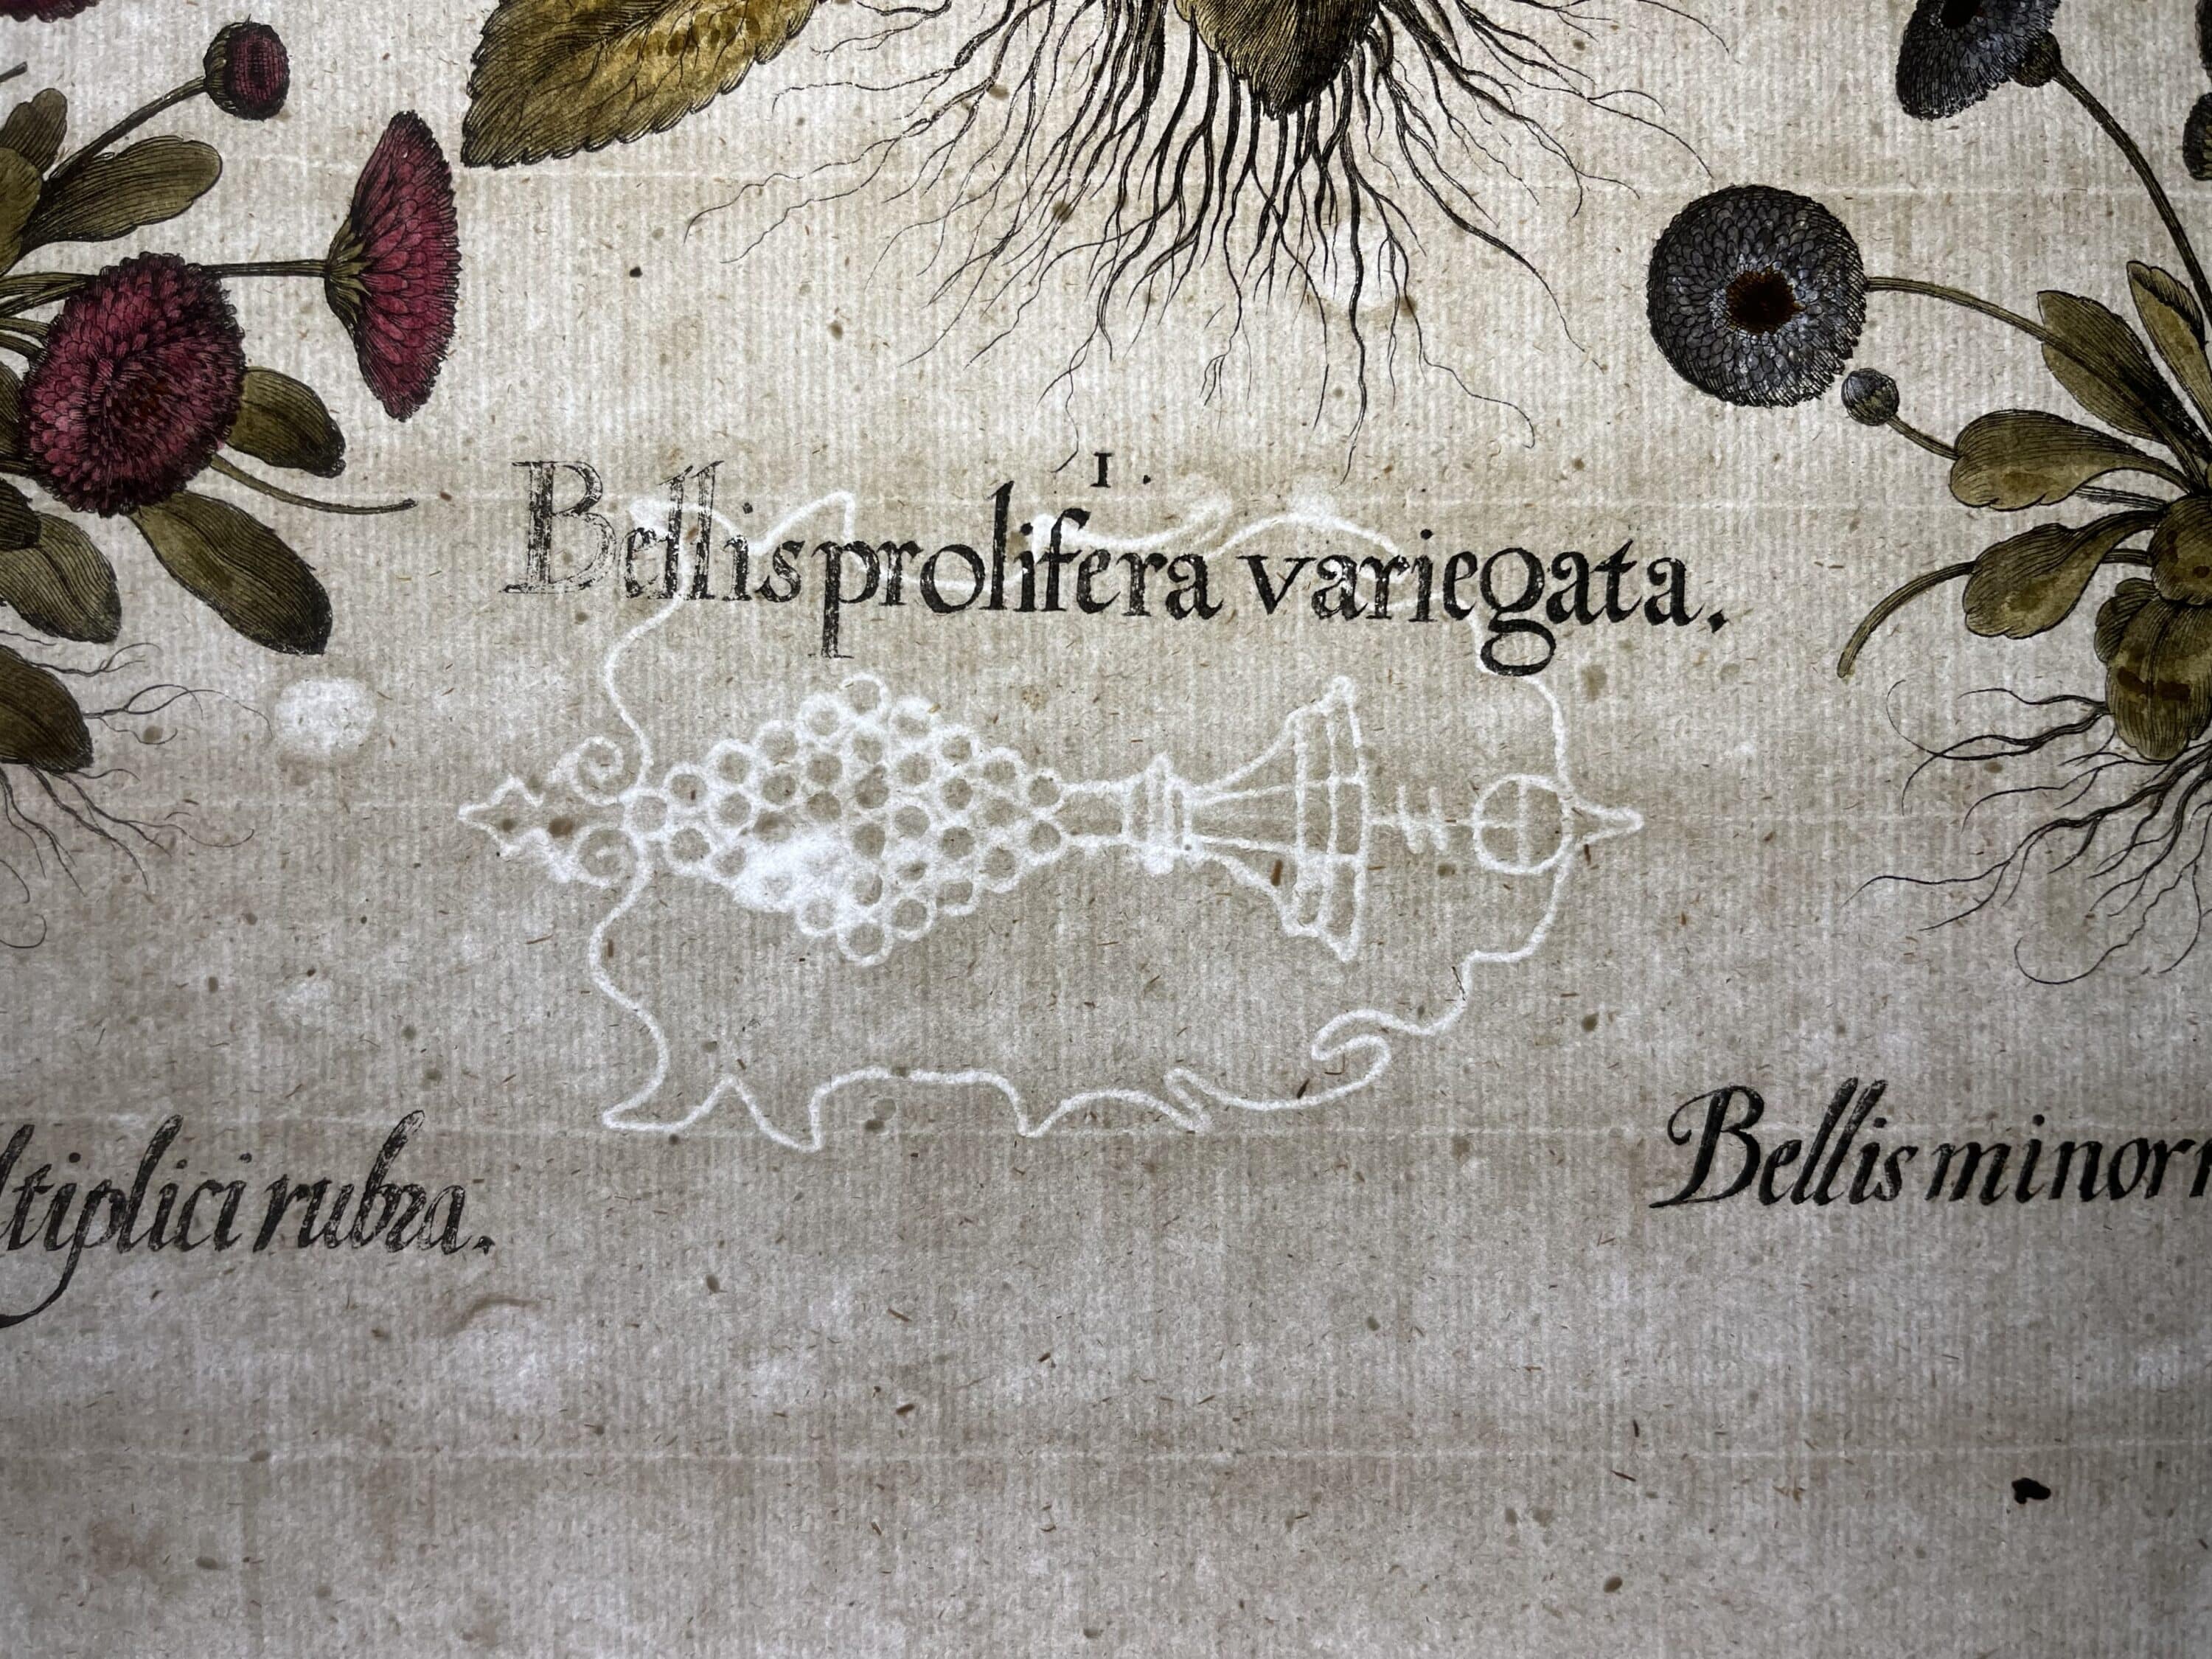 1.
Bellis prolifera variegata.
ltiplici rubra.
Bellis minor